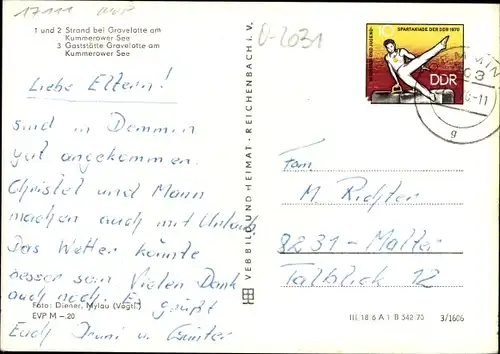 17111
0-2031
1 und 2 Strand bei Gravelotte am
Kummerower See
3 Gaststätte Gravelotte am
Kummerower See
Liebe Eltern!
sind in Demmin
gut angekommen.
Christel und Mann
machen auch mit Urlaub.
Das Wetter könnte
besser sein Vielen Dank
auch noch. Es grüßt
Euch Irmi u. Günter
Foto: Diener, Mylau (Vogtl.)
EVP M –.20
VEB BILD UND HEIMAT · REICHENBACH i. V.
10
SPARTAKIADE DER DDR 1970
KINDER- UND JUGEND-
DDR
DEMMIN
203
-11
g
Fam.
M. Richter
8231 - Malter
Talblick 12
III 18 6 A 1 B 542 70
3/1606